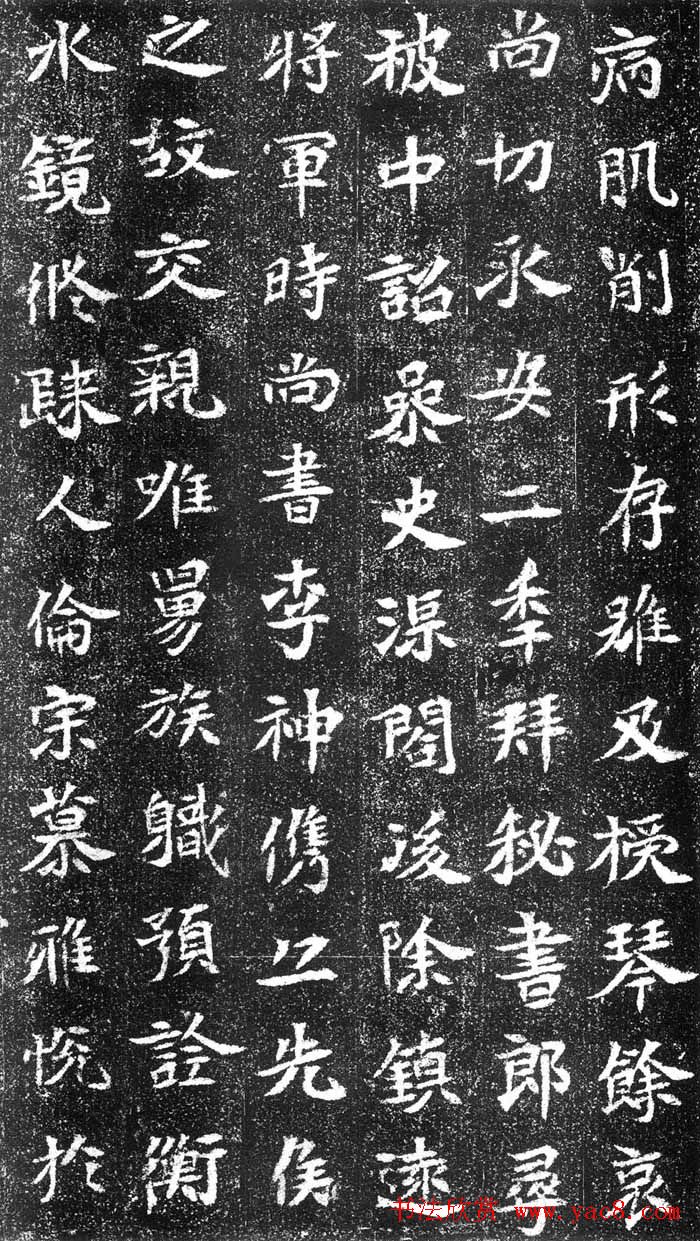 病肌削形存雖及援琴餘哀
尚切永安二年拜秘書郎尋
被中詔參史渠閣後除鎮遠
將軍時尚書李神儁以先侯
之故交親唯舅族職預詮衡
水鏡疎人倫宗慕雅悅於
书法欣赏 www.yac8.com